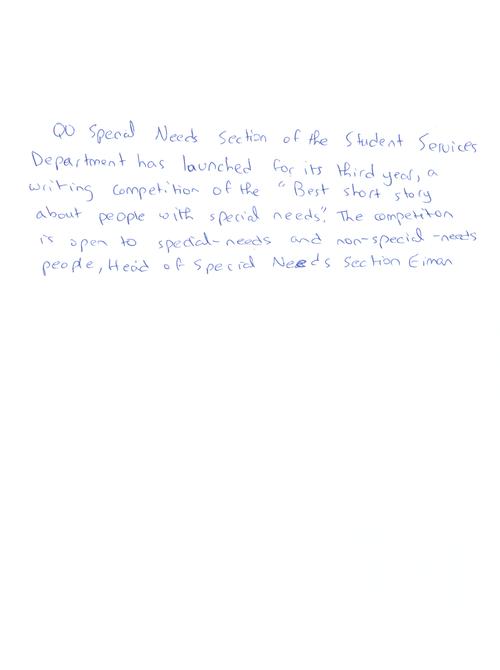 QU Special Needs Section of the Student Services
Department has launched for its third year, a
writing competition of the "Best short story
about people with special needs". The competiton
is open to special-needs and non-special-needs
people, Head of Special Needs Section Eiman